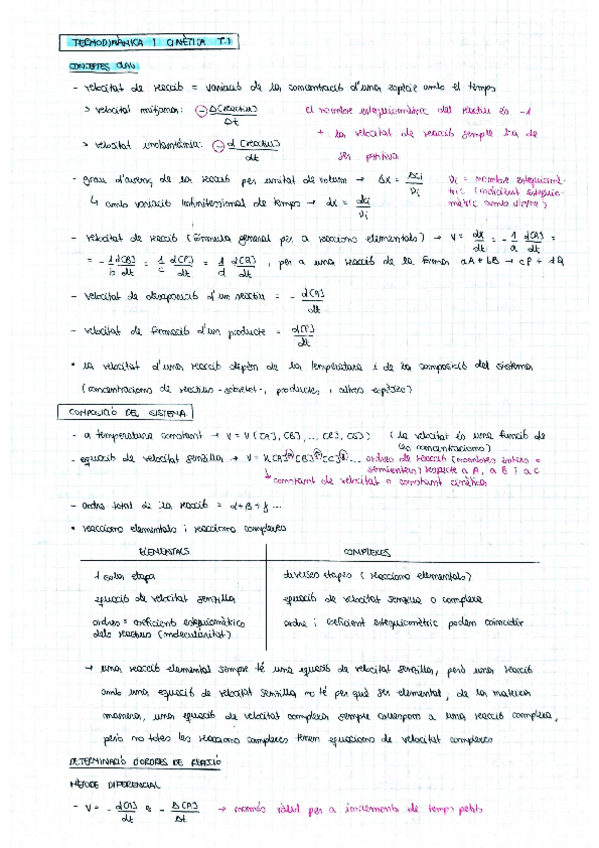 TERMODINÀMICA I CINÈTICA T.1
CONCEPTES CLAU
- velocitat de reacció = variació de la concentració d'una espècie amb el temps
> velocitat mitjana: - Δ[reactiu]/Δt
el nombre estequiomètric del reactiu és -1
+ la velocitat de reacció sempre ha de
> velocitat instantània: - d[reactiu]/dt
ser positiva
- grau d'avenç de la reacció per unitat de volum → Δx = Δci/νi
νi = nombre estequiomè-
tric (coeficient estequio-
mètric amb signe)
↳ amb variació infinitessional de temps → dx = dci/νi
- velocitat de reacció (fórmula general per a reaccions elementals) → v = dx/dt = - 1/a d[A]/dt =
= - 1/b d[B]/dt = 1/c d[P]/dt = 1/d d[Q]/dt, per a una reacció de la forma aA + bB → cP + dQ
- velocitat de desaparició d'un reactiu = - d[A]/dt
- velocitat de formació d'un producte = d[P]/dt
• la velocitat d'una reacció depèn de la temperatura i de la composició del sistema
(concentracions de reactius -sobretot-, productes i altres espècies)
COMPOSICIÓ DEL SISTEMA
- a temperatura constant → v = v([A], [B], ... [R], [S])
(la velocitat és una funció de
les concentracions)
- equació de velocitat senzilla → v = k[A]^α[B]^β[C]^γ...
ordres de reacció (nombres enters o
semienters) respecte a A, a B i a C
↓ constant de velocitat o constant cinètica
- ordre total de la reacció = α+β+γ...
• reaccions elementals i reaccions complexes
ELEMENTALS
COMPLEXES
1 sola etapa
diverses etapes (reaccions elementals)
equació de velocitat senzilla
equació de velocitat senzilla o complexa
ordres = coeficients estequiomètrics
dels reactius (molecularitat)
ordre i coeficient estequiomètric poden coincidir
→ una reacció elemental sempre té una equació de velocitat senzilla, però una reacció
amb una equació de velocitat senzilla no té per què ser elemental, de la mateixa
manera, una equació de velocitat complexa sempre correspon a una reacció complexa,
però no totes les reaccions complexes tenen equacions de velocitat complexes
DETERMINACIÓ D'ORDRES DE REACCIÓ
MÈTODE DIFERENCIAL
- v = - d[A]/dt ≈ - Δ[A]/Δt → només vàlid per a increments de temps petits